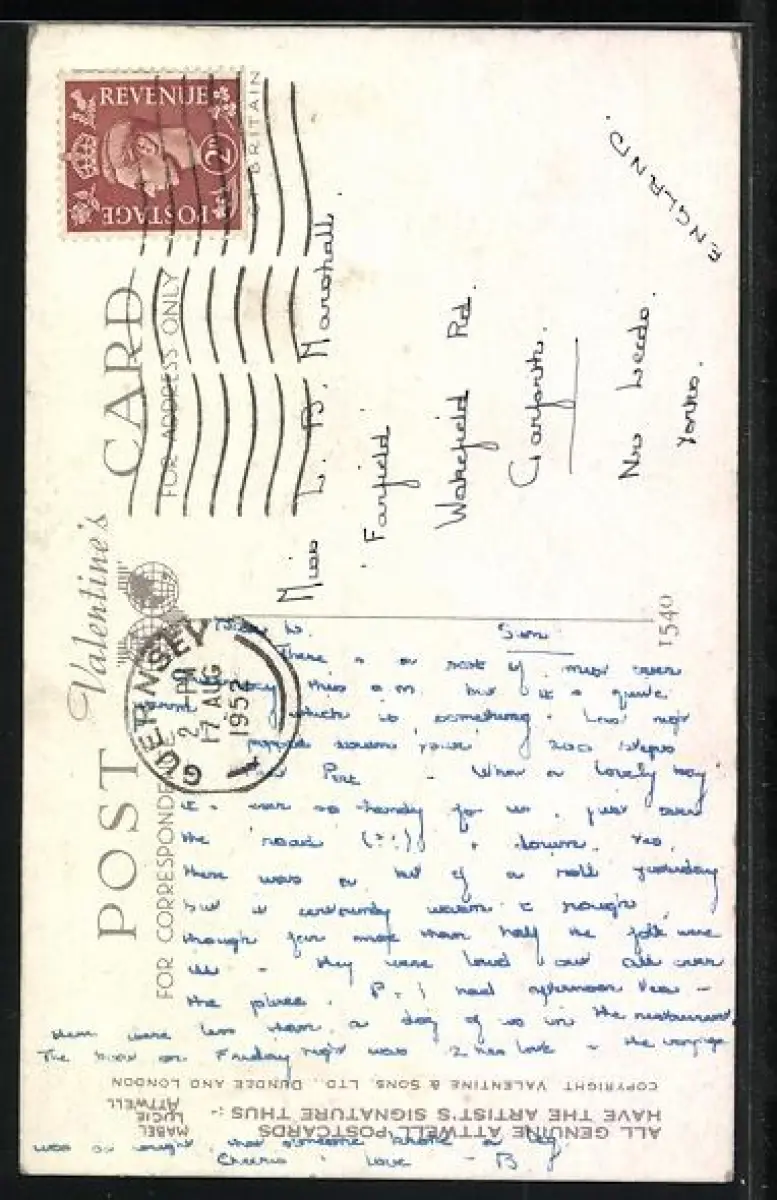 POST CARD
Valentine's
FOR CORRESPONDENCE
FOR ADDRESS ONLY
BRITAIN
POSTAGE
REVENUE
2D
GUERNSEY
2 - PM
17 AUG
1952
Miss L. B. Marshall.
Farfield
Wakefield Rd.
Garforth.
Nr. Leeds.
Yorks.
ENGLAND.
1540
Sun
There is a sort of mist over
this a.m. but it is quite
warm which is something. Last night
down 200 steps
Port - What a lovely bay
it is ever so handy for us, just over
the road (??) & down. Yes,
there was a bit of a roll yesterday
but it certainly wasn't rough
though far more than half the folk were
ill - they were laid out all over
the place. P & I had afternoon tea -
there were less than a dog of us in the restaurant
The boat on Friday night was 2 hrs late & the voyage
was so rough that someone broke a leg.
Cheerio Love - B
COPYRIGHT VALENTINE & SONS, LTD., DUNDEE AND LONDON
ALL GENUINE ATTWELL POSTCARDS
HAVE THE ARTIST'S SIGNATURE THUS :-
MABEL
LUCIE
ATTWELL